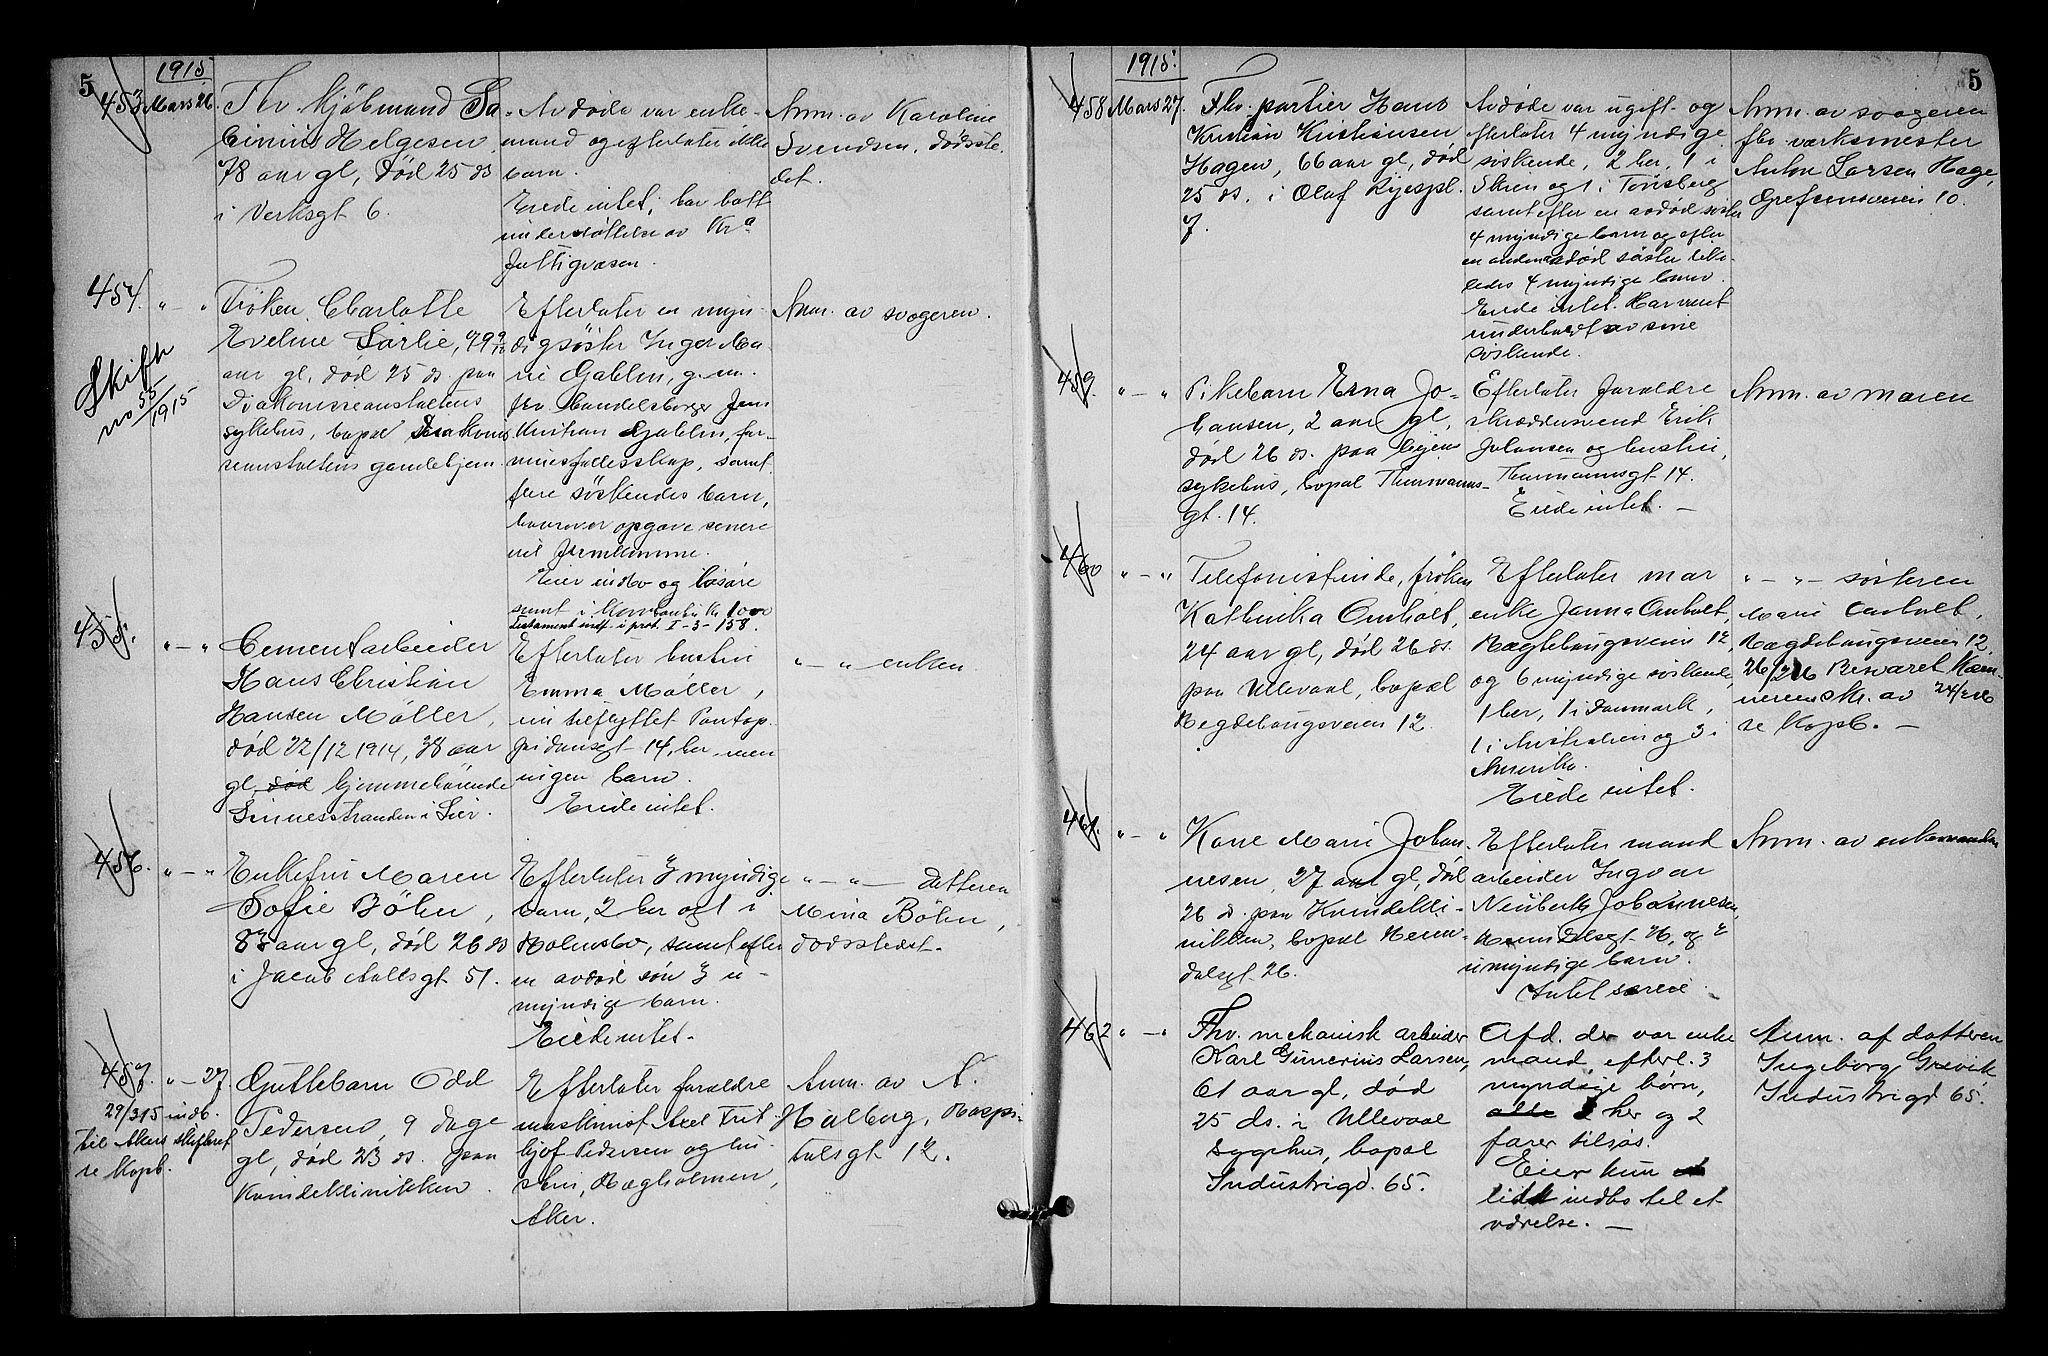 5
1915
453 Mars 26.
Fhv. Kjöbmand Sa-
Helgesen
78 aar gl, död 25 ds
i Verksgt 6.
Avdöde var enke-
mand og efterlater ikke
barn.
Eiede intet; har hatt
understöttelse av Kra
fattigvæsen.
Anm. av Karoline
Svendsen, dödsste-
det.
454. " — "
Skifte
no 55/1915
Fröken Charlotte
Eveline Sörlie,
aar gl, död 25 ds. paa
Diakonisseanstaltens
sykehus, bopæl Diakonis-
seanstaltens gamlehjem.
Efterlater en myn-
dig söster Inger Ma-
rie Gahlin, g.m.
fhv. handelsborger Jens
Kristian Gahlin, for-
muesfællesskap, samt
flere söskendes barn,
hvorover opgave senere
vil fremkomme.
Eier indbo og lösöre
samt i kontanter Kr. 1000
Testament indf. i prot. I-3-158.
Anm. av svogeren.
455. " — "
Cementarbeider
Hans Christian
Hansen Möller,
död 22/12 1914, 38 aar
gl, död hjemmehörende
Linnesstranden i Lier.
Efterlater hustru
Emma Möller,
nu tilflyttet Pontop-
pidansgt 14, her, men
ingen barn.
Eiede intet.
" — " enken
456. " — "
Enkefru Maren
Sofie Böhn,
83 aar gl, död 26 ds
i Jacob Aallsgt 51.
Efterlater 3 myndige
barn, 2 her og 1 i
Holmsbo, samt efter
en avdöd sön 3 u-
myndige barn.
Eiede intet.
" — " datteren
Mina Böhn,
dödsstedet.
457. " — 27.
29/3 15 indb.
til Akers skifteret
se Kopb.
Guttebarn Odd
Pedersen, 9 dage
gl, död 23 ds. paa
Kvindeklinikken.
Efterlater forældre
maskinist Axel Frit-
hjof Pedersen og hu-
stru, Hægholmen,
Aker.
Anm. av A.
Halberg, Hospi-
talsgt 12.
1915.
5
458 Mars 27.
Fhv. portier Hans
Kristian Kristiansen
Hagen, 66 aar gl, död
25 ds. i Olaf Ryespl.
7.
Avdöde var ugift og
efterlater 4 myndige
söskende, 2 her, 1 i
Skien og 1 i Tönsberg
samt efter en avdöd söster
4 myndige barn og efter
en anden avdöd söster like-
ledes 4 myndige barn.
Eiede intet. Har været
underholdt av sine
söskende.
Anm. av svogeren
fhv. værksmester
Anton Larsen Hage,
Grefsensveien 10.
459. " — "
Pikebarn Erna Jo-
hansen, 2 aar gl,
död 26 ds. paa
sykehus, bopæl Thurmanns-
gt. 14.
Efterlater forældre
skræddersvend Erik
Johansen og hustru,
Thurmannsgt 14.
Eiede intet. —
Anm. av moren
460 " — "
Telefonistinde, fröken
Kathinka Omholt,
24 aar gl, död 26 ds.
paa Ullevaal, bopæl
Hegdehaugsveien 12.
Efterlater mor
enke Janna Omholt,
Hægdehaugsveien 12,
og 6 myndige söskende,
1 her, 1 i Danmark,
1 i Australien og 3 i
Amerika.
Eiede intet.
" — " — sösteren
Marie Omholt,
Hægdehaugsveien 12.
26/2 26 Besvaret Kæm-
nerens skr. av 24/2 26
se Kopb. —
461. " — "
Kone Marie Johan-
nesen, 27 aar gl, död
26 ds. paa Kvindekli-
nikken, bopæl Heim-
dalsgt 26.
Efterlater mand
arbeider Ingvar
Johannesen,
Heimdalsgt 26, og 2
umyndige barn.
Intet særeie.
Anm. av enkemanden
462 " — "
Fhv. mekanisk arbeider
Karl Gunerius Larsen,
61 aar gl, död
25 ds. i Ullevaal
sygehus, bopæl
Industrigd. 65.
Afd. der var enke-
mand, efterl. 3
myndige börn,
alle 1 her og 2
farer tilsjös.
Eier kun
lidt indbo til et
værelse. —
Anm. af datteren
Ingeborg Grevik
Industrigd 65.